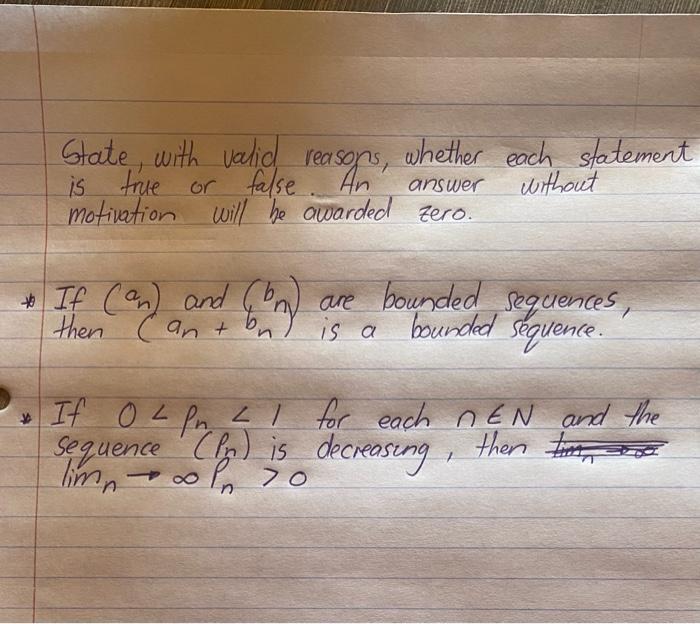 State, with valid reasons, whether each statement
is true or false. An answer without
motivation will be awarded zero.
* If (an) and (bn) are bounded sequences,
then (an + bn) is a bounded sequence.
* If 0 < Pn < 1 for each n ∈ N and the
sequence (Pn) is decreasing, then
limn → ∞ Pn > 0